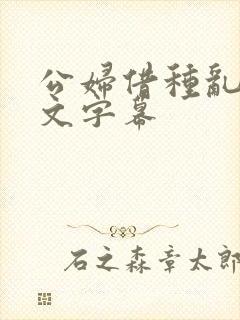 公婦借種亂
文字幕
石之森章太郎